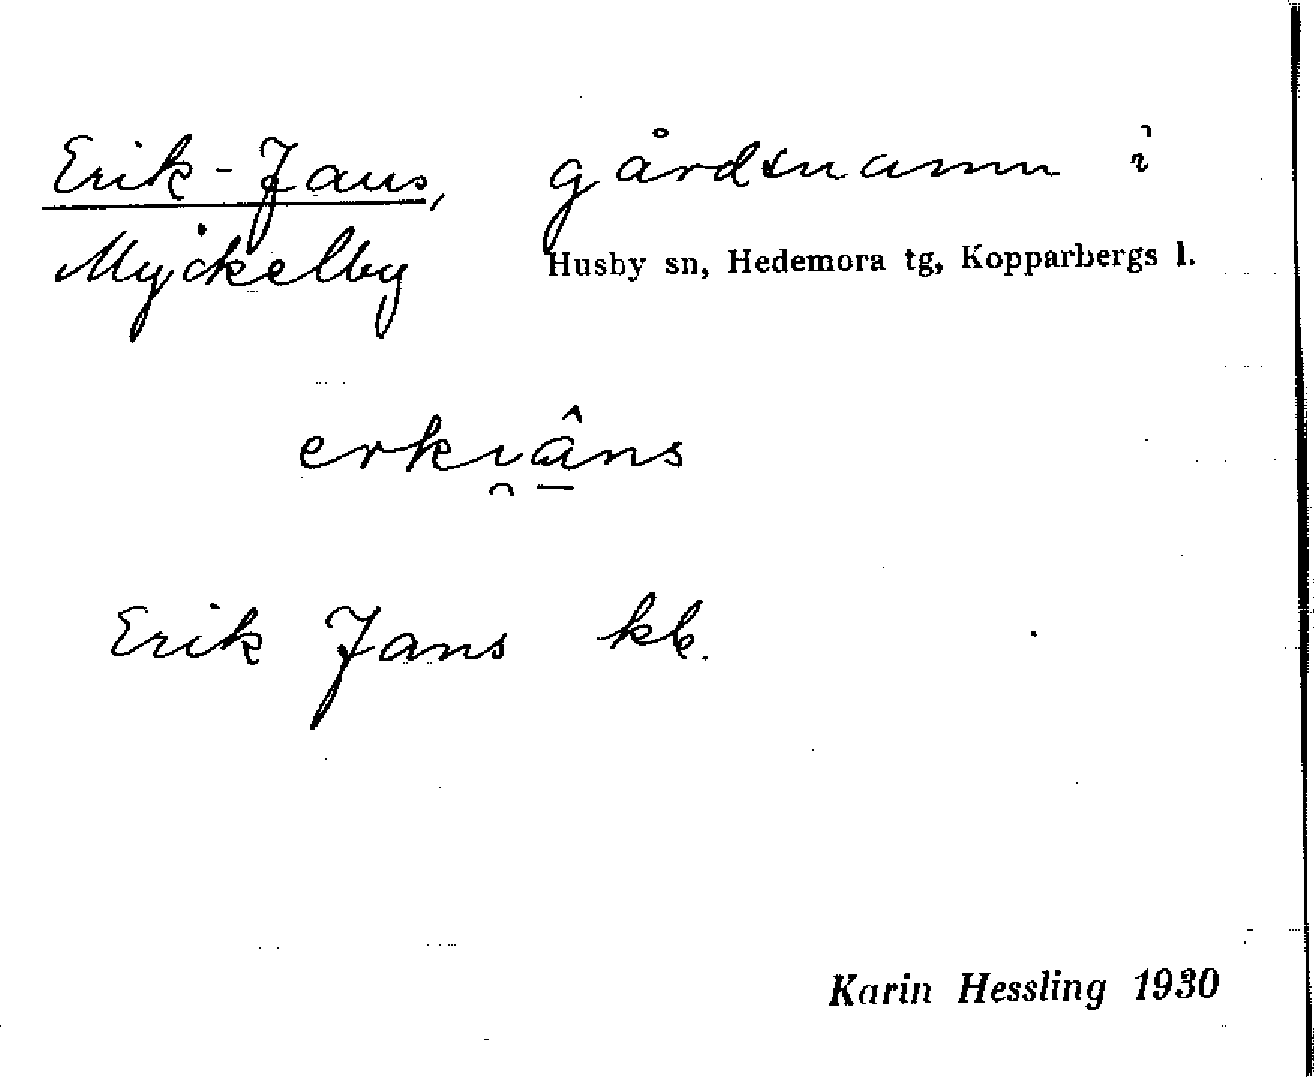 Erik-Jans, gårdsnamn i
Myckelby Husby sn, Hedemora tg, Kopparbergs l.
erkı̯â̱ns
Erik Jans kb.
Karin Hessling 1930